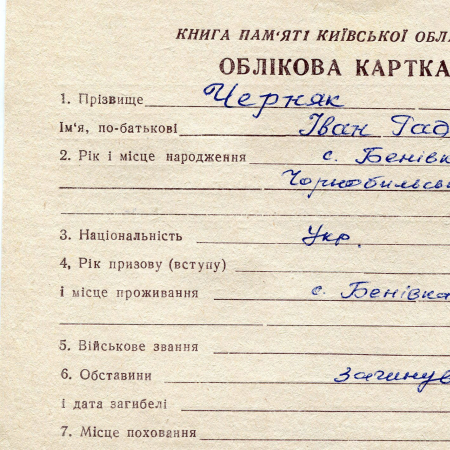 КНИГА ПАМ'ЯТІ КИЇВСЬКОЇ ОБЛ
ОБЛІКОВА КАРТКА
1. Прізвище Черняк
Ім'я, по-батькові Іван Гад
2. Рік і місце народження с. Бенівк
Чорнобильсь
3. Національність Укр.
4, Рік призову (вступу)
і місце проживання с. Бенівка
5. Військове звання
6. Обставини загинув
і дата загибелі
7. Місце поховання